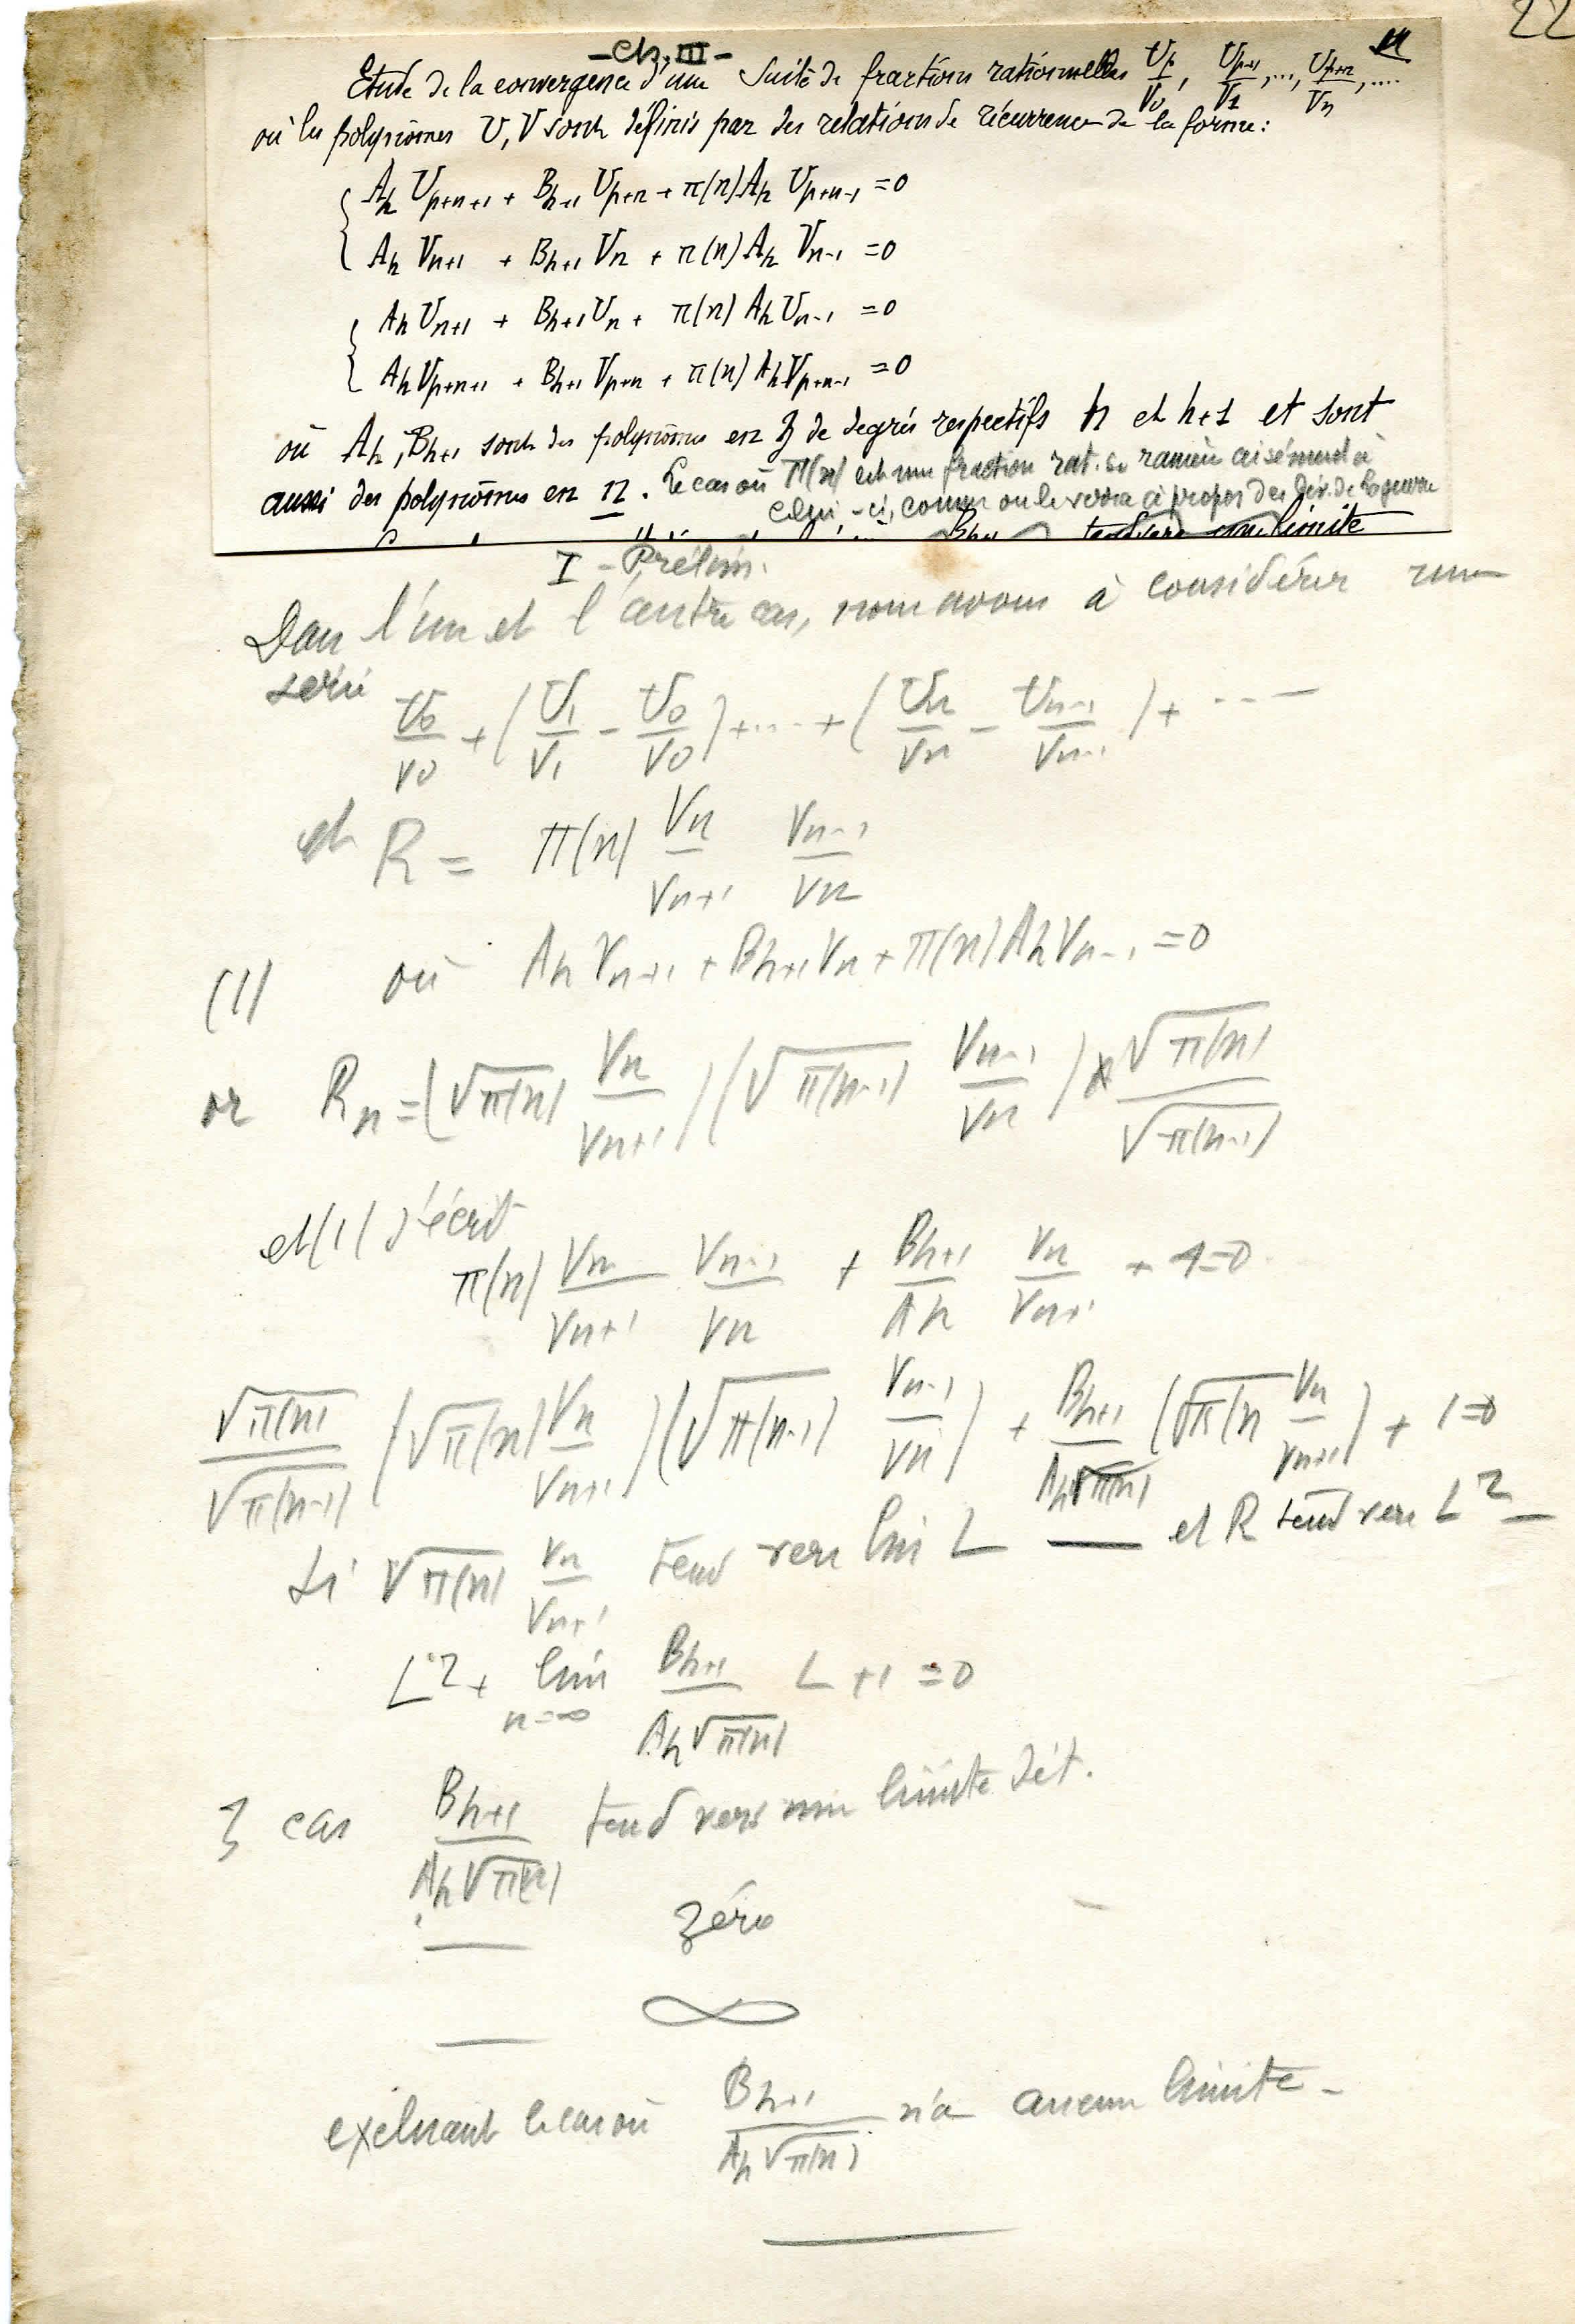 22
- Ch. III -
Etude de la convergence d'une suite de fractions rationnelles U_p/V_0, U_{p+1}/V_1, ..., U_{p+n}/V_n, ....
où les polynômes U, V sont définis par des relations de récurrence de la forme :
A_h U_{p+n+1} + B_{h+1} U_{p+n} + π(n) A_h U_{p+n-1} = 0
A_h V_{n+1} + B_{h+1} V_n + π(n) A_h V_{n-1} = 0
A_h U_{n+1} + B_{h+1} U_n + π(n) A_h U_{n-1} = 0
A_h V_{p+n+1} + B_{h+1} V_{p+n} + π(n) A_h V_{p+n-1} = 0
où A_h, B_{h+1} sont des polynômes en z de degrés respectifs h et h+1 et sont
aussi des polynômes en n. Le cas où π(n) est une fraction rat. se ramène aisément à
celui-ci, comme on le verra à propos des dév. de Laguerre
B_{h+1} tend vers une limite
I - Prélim.
Dans l'un et l'autre cas, nous avons à considérer une
série
U_0/V_0 + (U_1/V_1 - U_0/V_0) + .... + (U_n/V_n - U_{n-1}/V_{n-1}) + ....
et R = π(n) V_n/V_{n+1} V_{n-1}/V_n
(1) où A_h V_{n+1} + B_{h+1} V_n + π(n) A_h V_{n-1} = 0
or R_n = (√π(n) V_n/V_{n+1}) (√π(n-1) V_{n-1}/V_n) × √π(n)/√π(n-1)
et (1) s'écrit
π(n) V_n/V_{n+1} V_{n-1}/V_n + B_{h+1}/A_h V_n/V_{n+1} + 1 = 0
√π(n)/√π(n-1) (√π(n) V_n/V_{n+1}) (√π(n-1) V_{n-1}/V_n) + B_{h+1}/(A_h √π(n)) (√π(n) V_n/V_{n+1}) + 1 = 0
Si √π(n) V_n/V_{n+1} tend vers lim L — et R tend vers L² —
L² + lim_{n=∞} B_{h+1}/(A_h √π(n)) L + 1 = 0
3 cas B_{h+1}/(A_h √π(n)) tend vers une limite dét.
— zéro
— ∞
excluant le cas où B_{h+1}/(A_h √π(n)) n'a aucune limite -